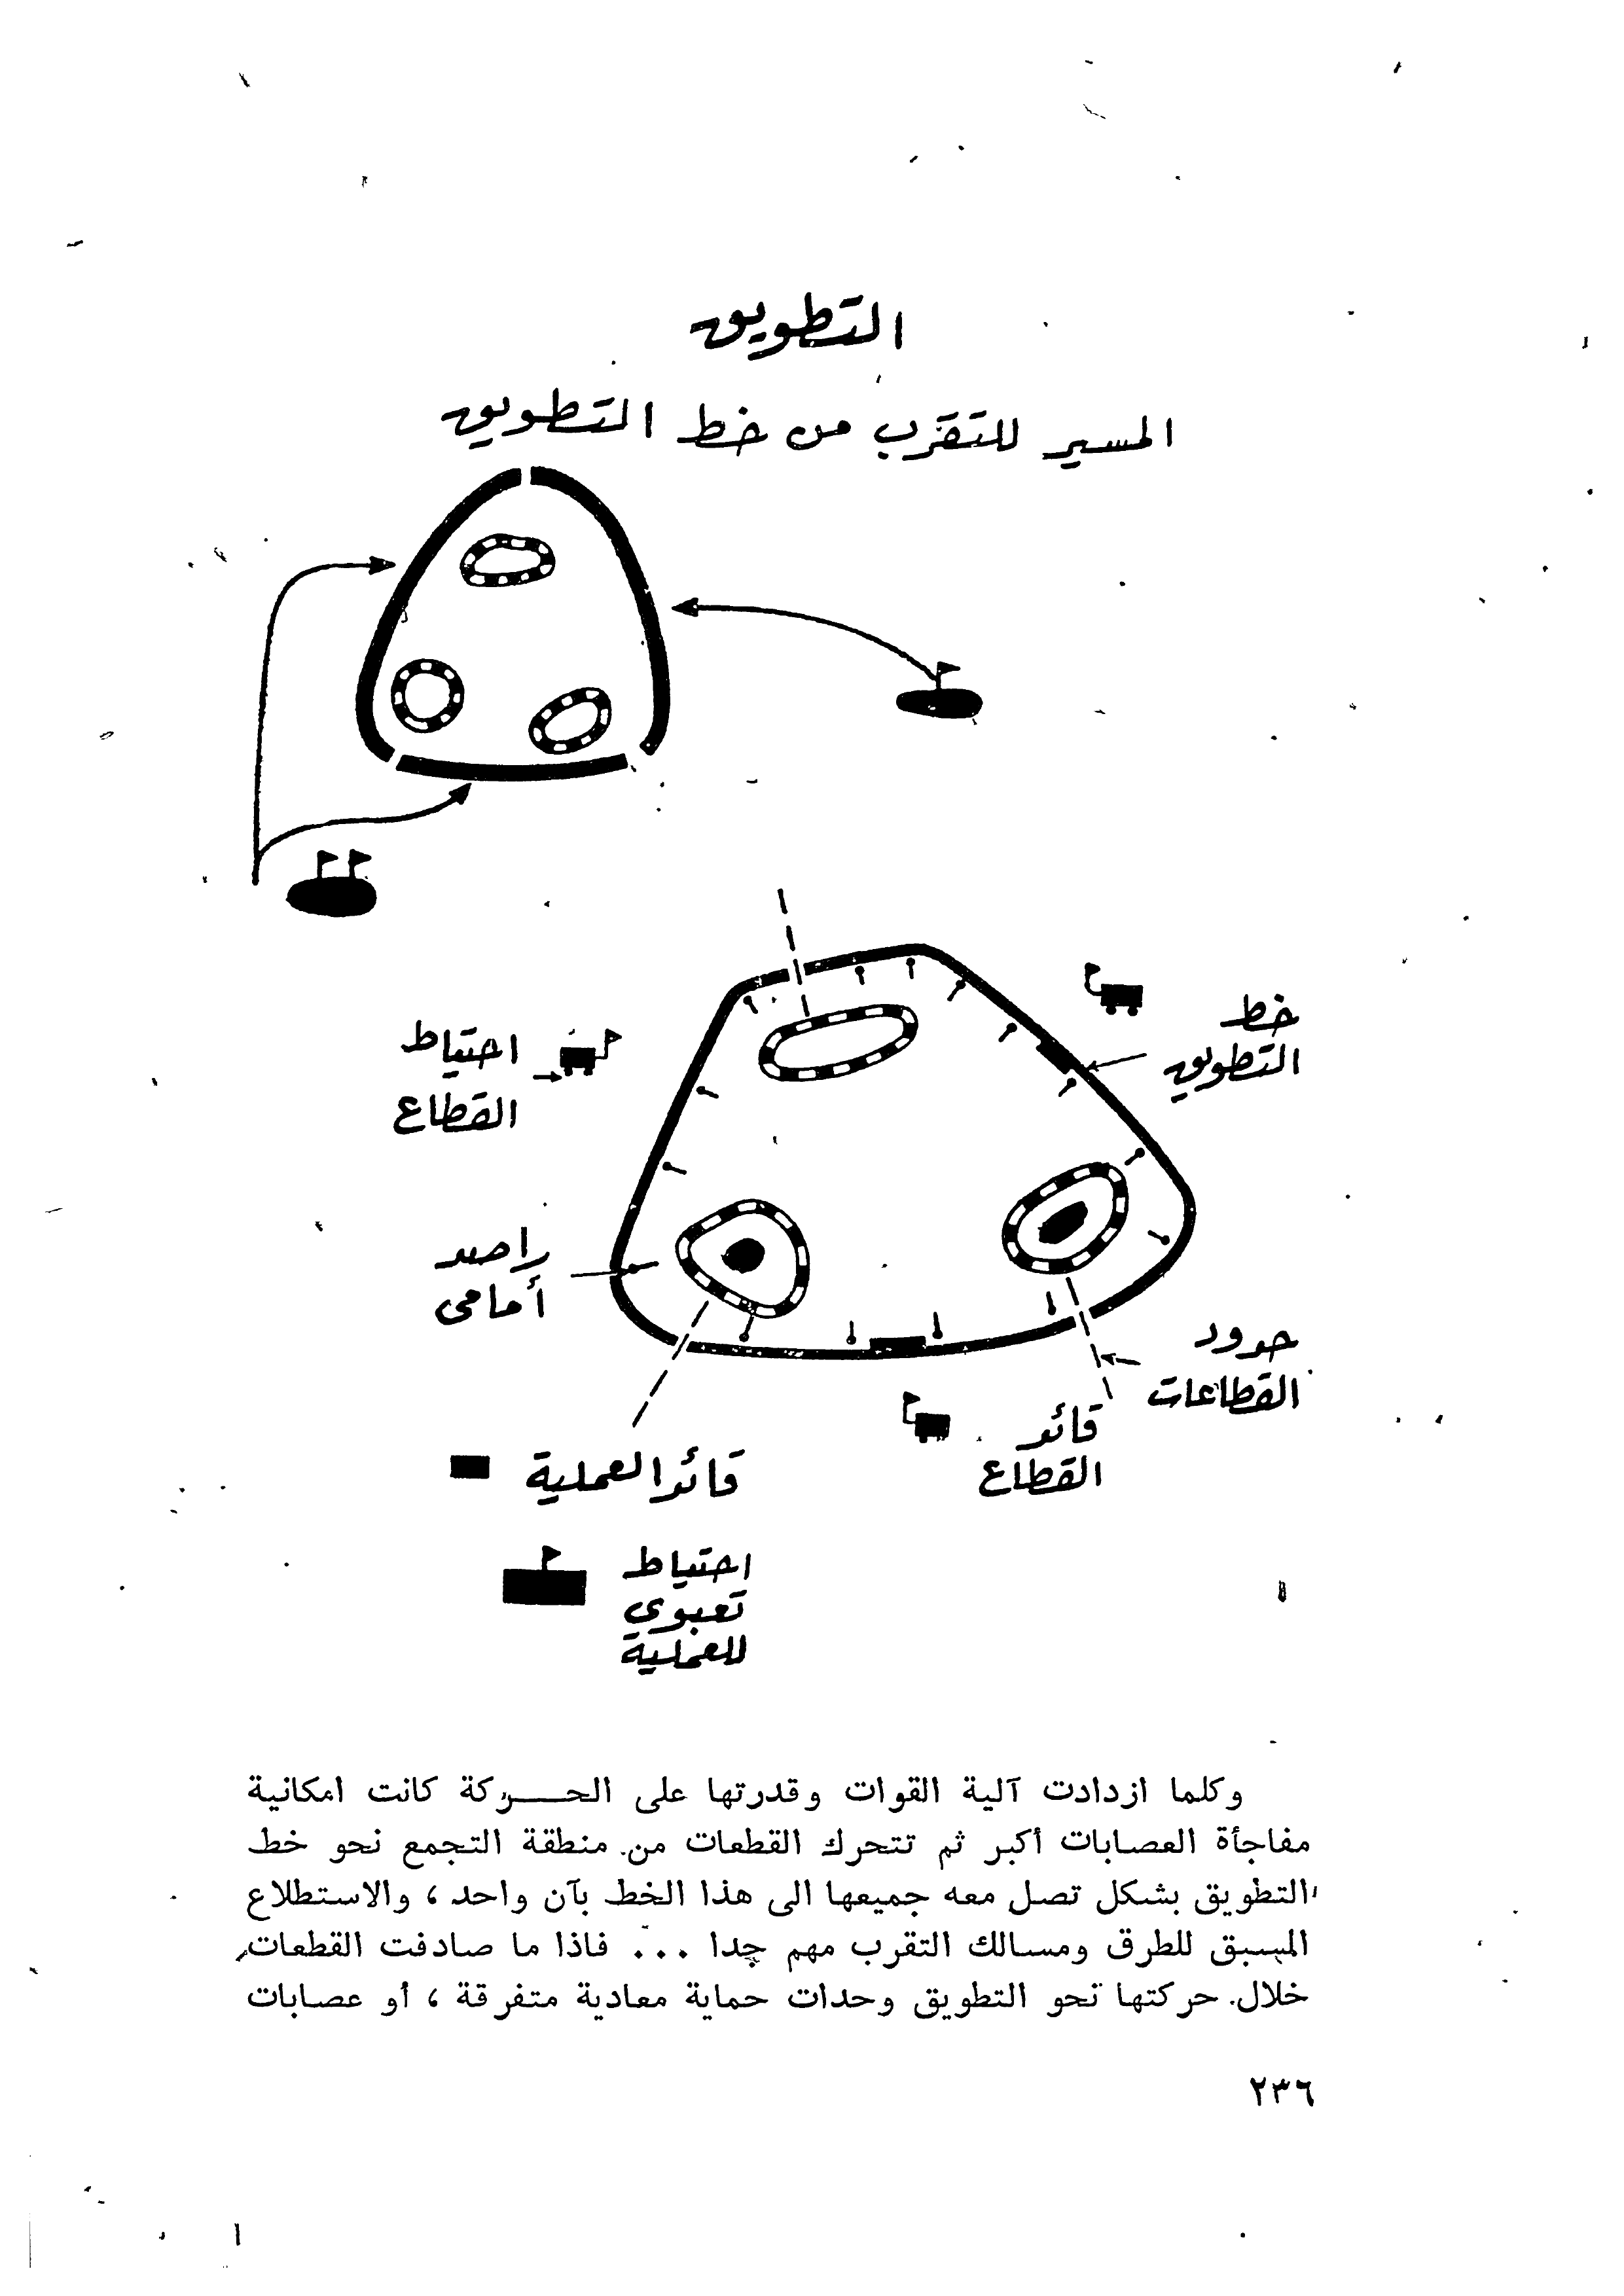 التطويق
المسير للتقرب من خط التطويق
خط
التطويق
احتياط
القطاع
راصد
أمامي
حدود
القطاعات
قائد
القطاع
قائد العملية
احتياط
تعبوي
للعملية
وكلما ازدادت آلية القوات وقدرتها على الحركة كانت امكانية
مفاجأة العصابات أكبر ثم تتحرك القطعات من منطقة التجمع نحو خط
التطويق بشكل تصل معه جميعها الى هذا الخط بآن واحد ، والاستطلاع
المسبق للطرق ومسالك التقرب مهم جدا ... فاذا ما صادفت القطعات
خلال حركتها نحو التطويق وحدات حماية معادية متفرقة ، أو عصابات
٢٣٦